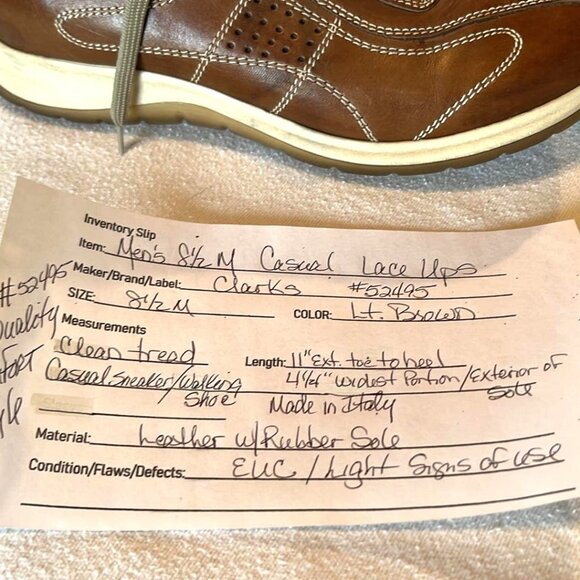 Inventory Slip
Item: Men's 8½ M Casual Lace Ups
Maker/Brand/Label: Clarks #52495
SIZE: 8½ M COLOR: Lt. Brown
Measurements
Clean tread Length: 11" Ext. toe to heel
Casual Sneaker/Walking Shoe 4¼" widest Portion/Exterior of Sole
Made in Italy
Material: Leather w/Rubber Sole
Condition/Flaws/Defects: EUC / Light Signs of use
#52495
Quality